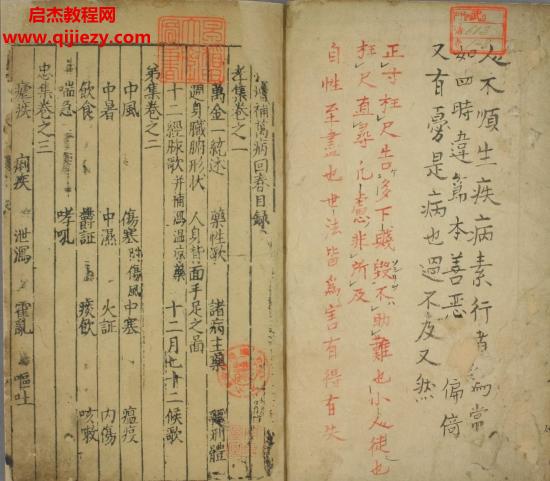 启杰教程网
www.qijiezy.com
人不順生疾病素行者為常
如四時違篇本善惡 偏倚
又有憂是病也過不及又然
正寸枉尺
下賤毀不助難也小人徒也
枉尺直尋凡慮非所及
自性至盡也世法皆為害有得有失
補萬病回春目錄
孝集卷之一
萬金一統述 藥性歌 諸病主藥 形體
周身臟腑形状 人身背面手足之圖
十二經脉歌并補瀉温凉藥 十二月七十二候歌
弟集卷之二
中風 傷寒附傷風 中寒 瘟疫
中暑 中濕 火証 内傷
飲食 欝証 痰飲 咳嗽
喘急 哮吼
忠集卷之三
瘧疾 痢疾 泄瀉 霍亂 嘔吐